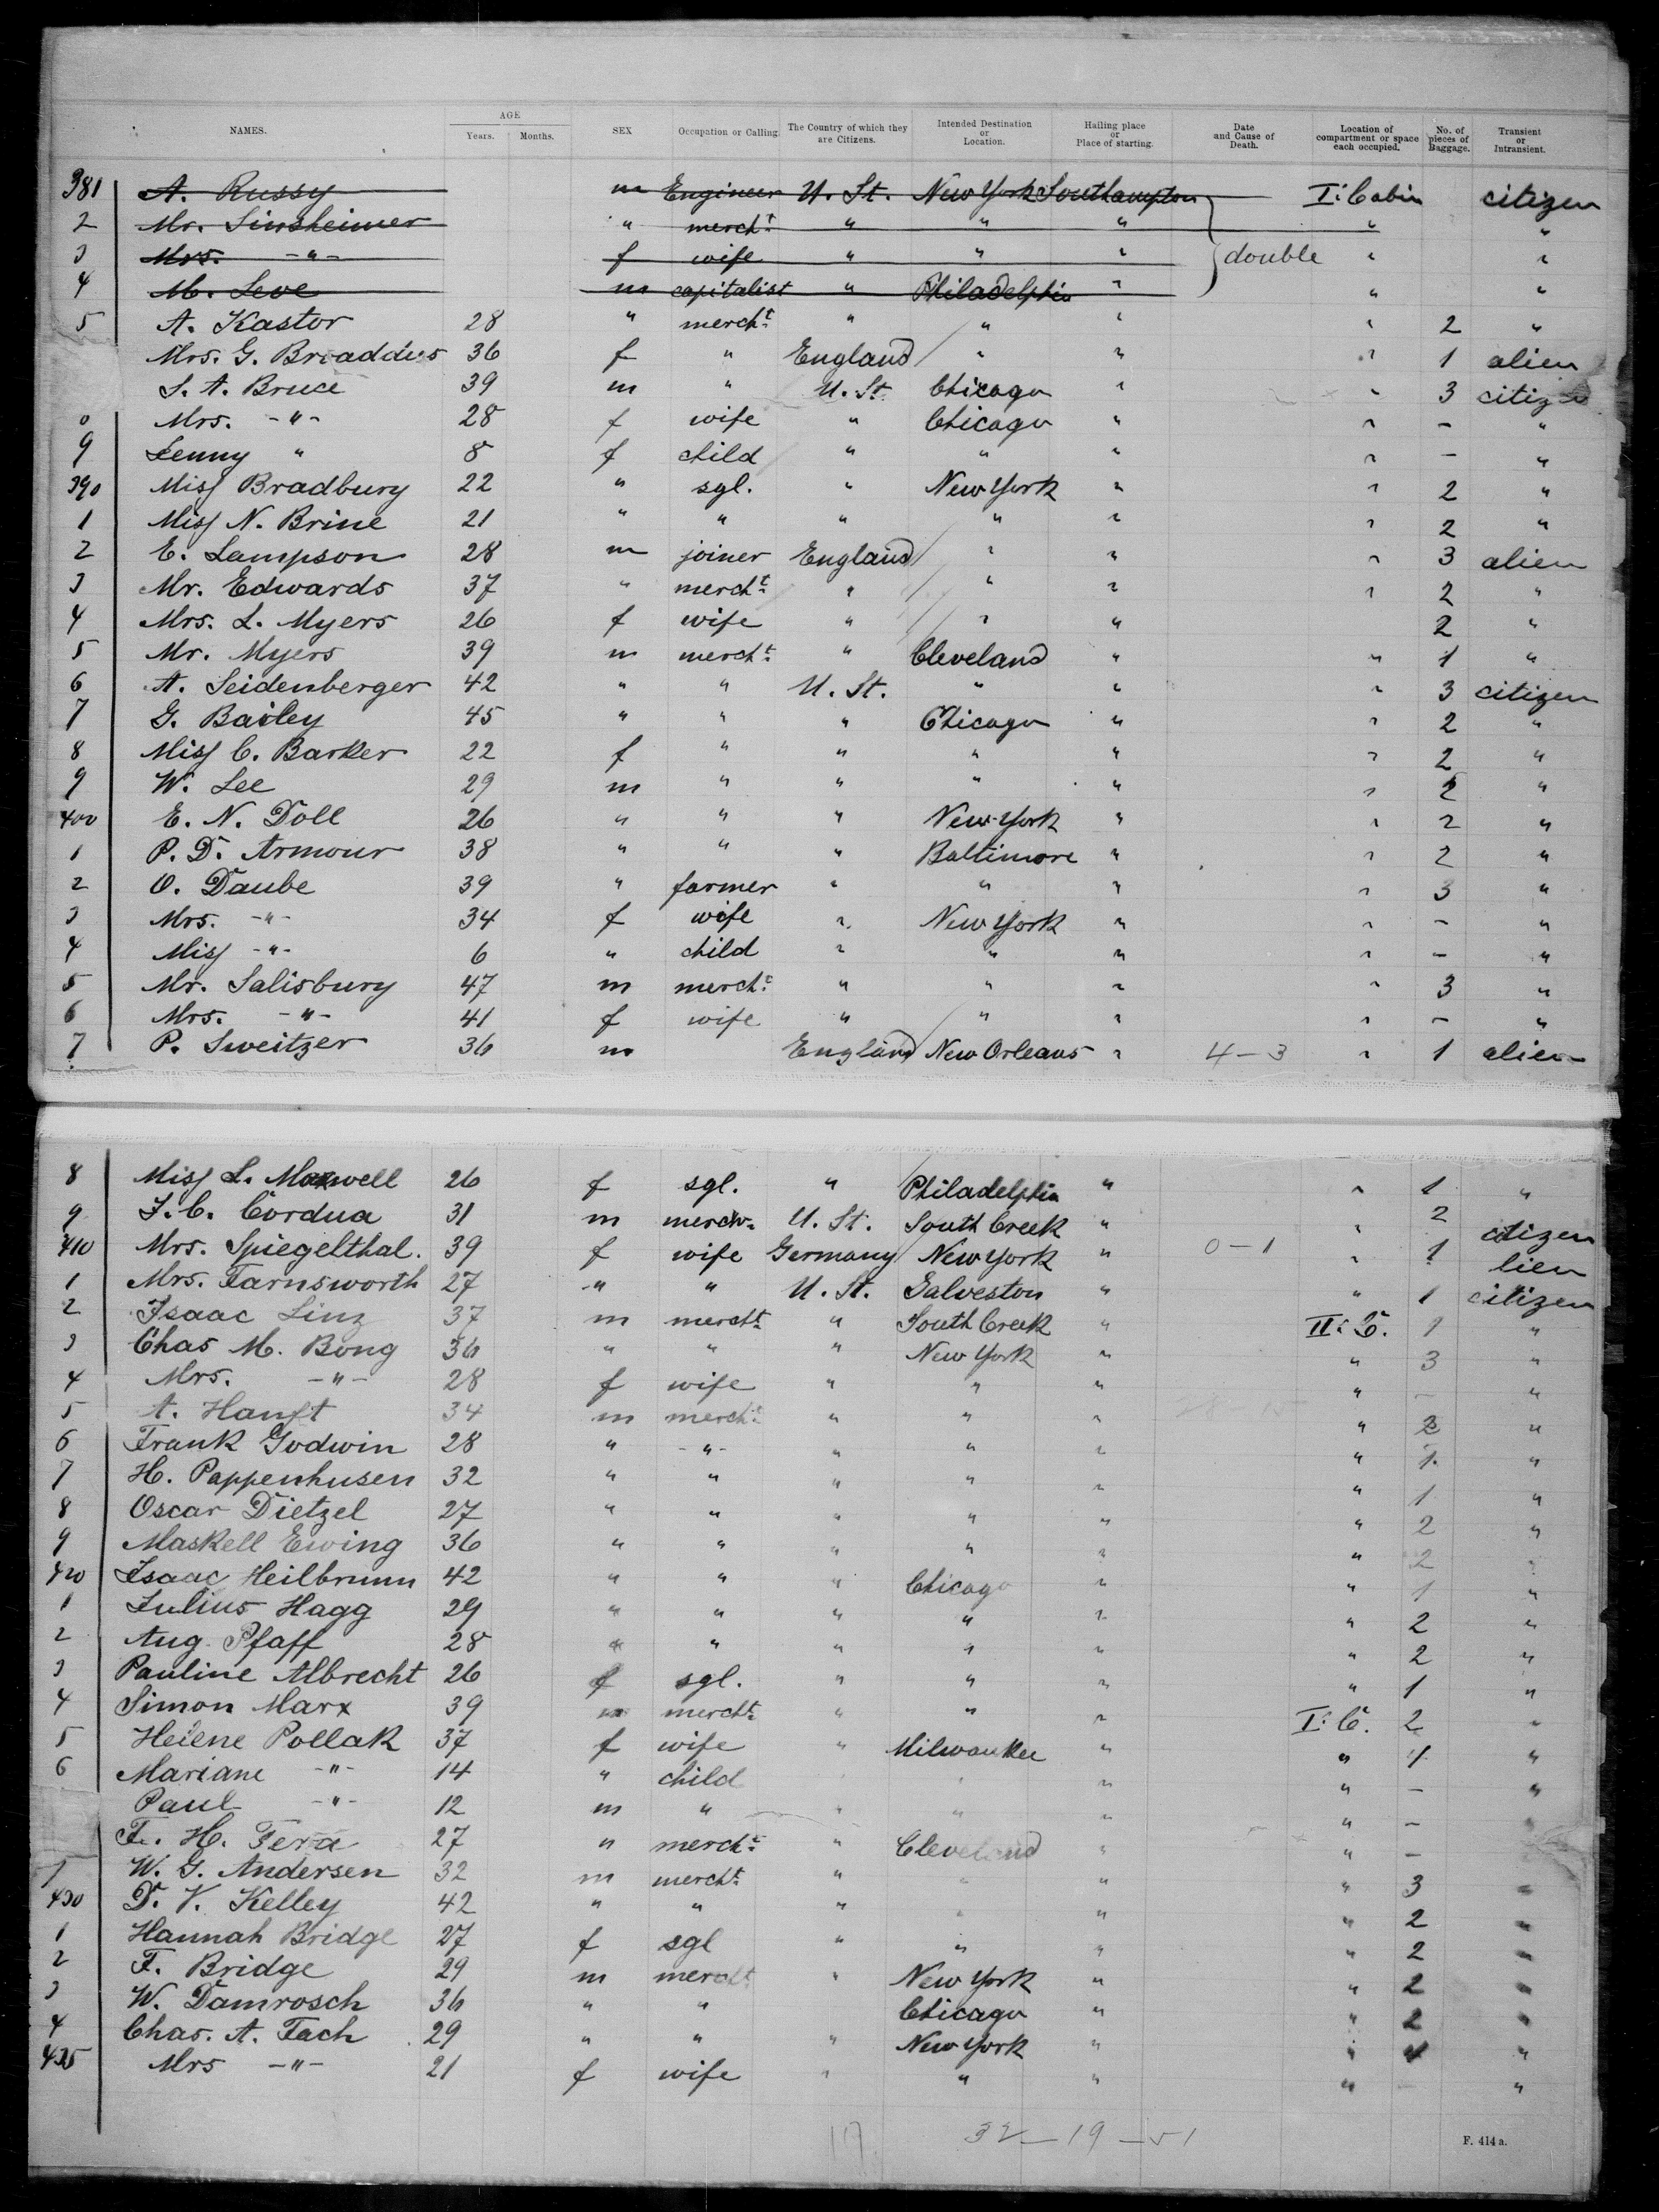 NAMES. AGE Years. Months. SEX Occupation or Calling. The Country of which they are Citizens. Intended Destination or Location. Hailing place or Place of starting. Date and Cause of Death. Location of compartment or space each occupied. No. of pieces of Baggage. Transient or Intransient.
381 A. Russy m Engineer U. St. New York Southampton I. Cabin citizen
2 Mr. Sinsheimer " mercht " " " " "
3 Mrs. -"- f wife " " " double " "
4 M. Leve m capitalist " Philadelphia " " "
5 A. Kastor 28 " mercht " " " " 2 "
Mrs. G. Broaddus 36 f " England " " " 1 alien
S. A. Bruce 39 m " U. St. Chicago " " 3 citize
Mrs. -"- 28 f wife " Chicago " " - "
9 Lenny " 8 f child " " " " - "
390 Miss Bradbury 22 " sgl. " New York " " 2 "
1 Miss N. Brine 21 " " " " " " 2 "
2 E. Lampson 28 m joiner England " " " 3 alien
3 Mr. Edwards 37 " mercht " " " " 2 "
4 Mrs. L. Myers 26 f wife " " " 2 "
5 Mr. Myers 39 m mercht " Cleveland " " 1 "
6 A. Seidenberger 42 " " U. St. " " " 3 citizen
7 G. Bailey 45 " " " Chicago " " 2 "
8 Miss C. Barker 22 f " " " " " 2 "
9 W. Lee 29 m " " " " " 2 "
400 E. N. Doll 26 " " " New York " " 2 "
1 P. D. Armour 38 " " " Baltimore " " 2 "
2 O. Daube 39 " farmer " " " " 3 "
3 Mrs. -"- 34 f wife " New York " " - "
4 Miss -"- 6 " child " " " " - "
5 Mr. Salisbury 47 m mercht " " " " 3 "
6 Mrs. -"- 41 f wife " " " " - "
7 P. Sweitzer 36 m England New Orleans " 4-3 " 1 alien
8 Miss L. Maxwell 26 f sgl. " Philadelphia " " 1 "
9 J. C. Cordua 31 m merch. U. St. South Creek " " 2 citizen
410 Mrs. Spiegelthal. 39 f wife Germany New York " 0-1 " 1 lien
1 Mrs. Farnsworth 27 " " U. St. Galveston " " 1 citizen
2 Isaac Linz 37 m mercht " South Creek " II. C. 1 "
3 Chas M. Bong 36 " " " New York " " 3 "
4 Mrs. -"- 28 f wife " " " " - "
5 A. Hanft 34 m mercht " " " " 2 "
6 Frank Godwin 28 " -"- " " " " 1 "
7 H. Pappenhusen 32 " " " " " " 1 "
8 Oscar Dietzel 27 " " " " " " 2 "
9 Maskell Ewing 36 " " " " " " 2 "
420 Isaac Heilbrunn 42 " " " Chicago " " 1 "
1 Julius Hagg 29 " " " " " " 2 "
2 Aug. Pfaff 28 " " " " " " 2 "
3 Pauline Albrecht 26 f sgl. " " " " 1 "
4 Simon Marx 39 m mercht " " " I. C. 2 "
5 Helene Pollak 37 f wife " Milwaukee " " 4 "
6 Mariane -"- 14 " child " " " " - "
Paul -"- 12 m " " " " " -
F. H. Fera 27 " mercht " Cleveland " " -
W. G. Andersen 32 m mercht " " " " 3 "
430 D. V. Kelley 42 " " " " " " 2 "
1 Hannah Bridge 27 f sgl " " " " 2 "
2 F. Bridge 29 m mercht " New York " " 2 "
3 W. Damrosch 36 " " Chicago " " 2 "
4 Chas. A. Fach 29 " " " New York " " "
435 Mrs -"- 21 f wife " " " " - "
17. 32-19-51
F. 414 a.